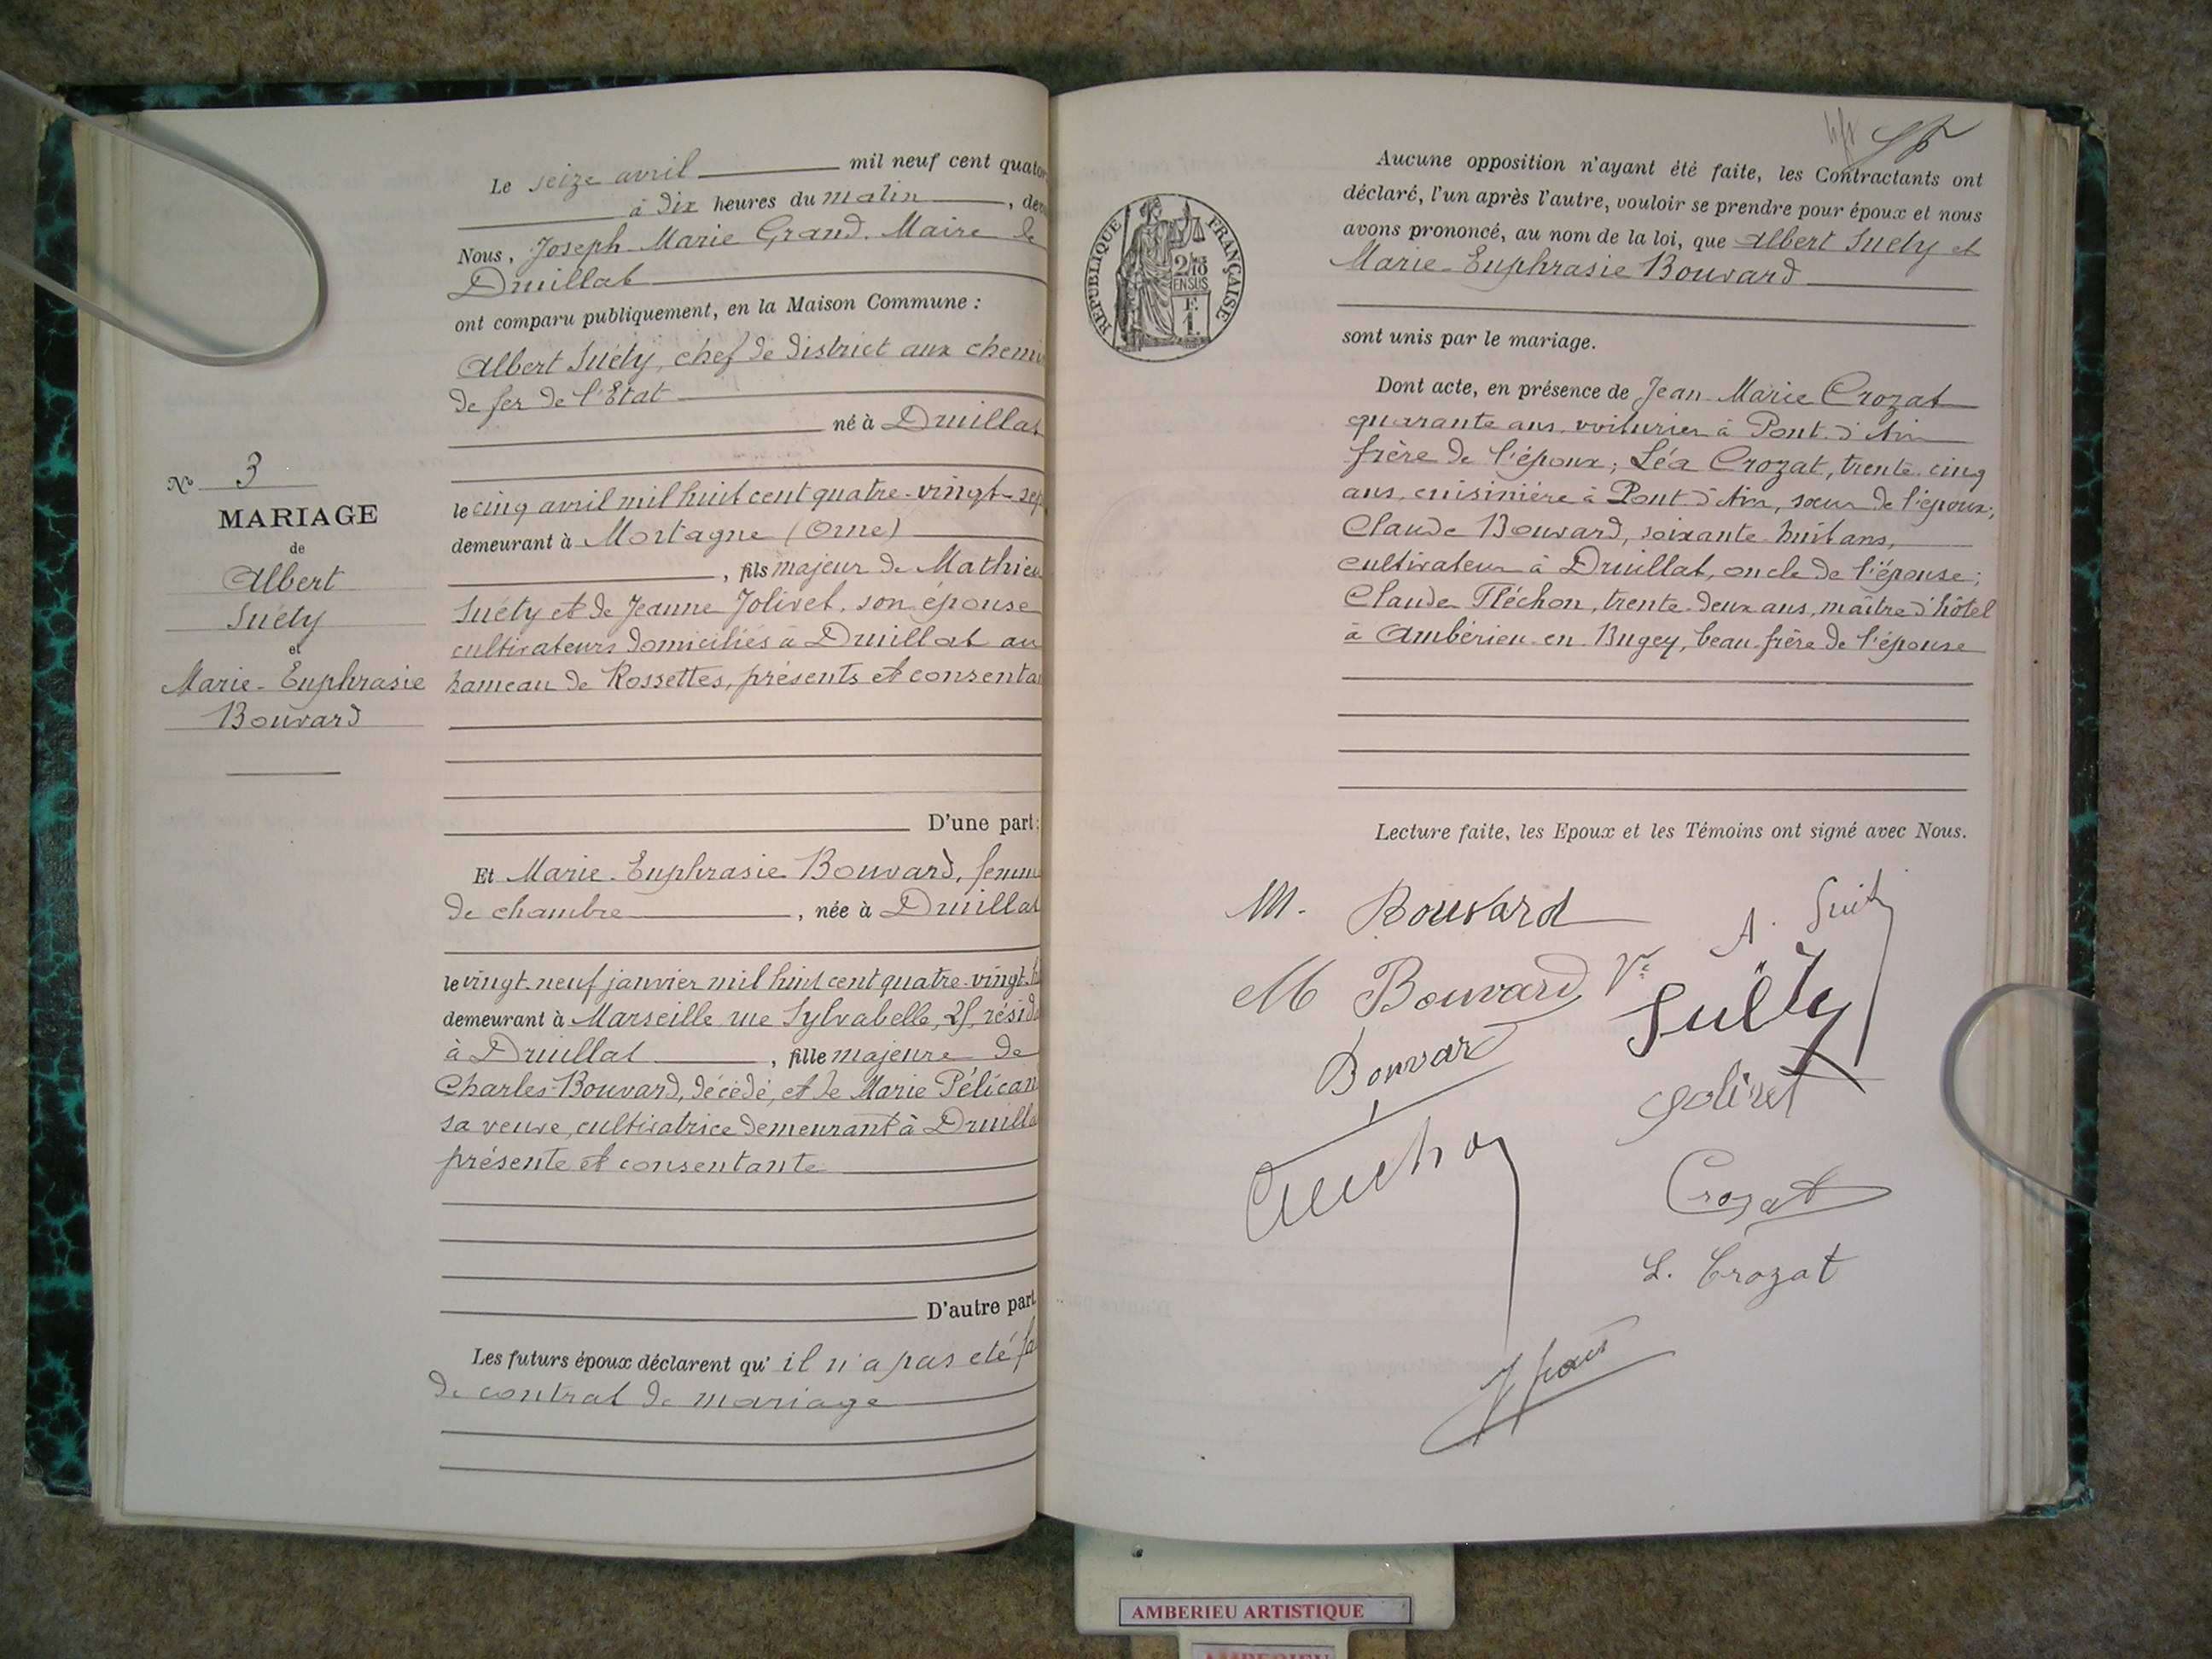 Le seize avril mil neuf cent quator
à dix heures du matin, dev
Nous, Joseph Marie Grand. Maire de
Druillat
ont comparu publiquement, en la Maison Commune :
Albert Suéty, chef de district aux chemi
de fer de l'Etat
né à Druillat
le cinq avril mil huit cent quatre-vingt-sep
demeurant à Mortagne (Orne)
, fils majeur de Mathieu
Suéty et de Jeanne Jolivet, son épouse
cultivateurs domiciliés à Druillat au
hameau de Rossettes, présents et consenta
D'une part:
Et Marie-Euphrasie Bouvard, femm
de chambre, née à Druillat
le vingt-neuf janvier mil huit cent quatre-vingt-h
demeurant à Marseille rue Sylvabelle, résida
à Druillat, fille majeure de
Charles Bouvard, décédé, et de Marie Pélican
sa veuve, cultivatrice demeurant à Druilla
présente et consentante
D'autre part
Les futurs époux déclarent qu' il n'a pas été fa
de contrat de mariage
N° 3
MARIAGE
de
Albert
Suéty
et
Marie-Euphrasie
Bouvard
RÉPUBLIQUE FRANÇAISE
2/10
EN SUS
F.
1.
Aucune opposition n'ayant été faite, les Contractants ont
déclaré, l'un après l'autre, vouloir se prendre pour époux et nous
avons prononcé, au nom de la loi, que Albert Suéty et
Marie-Euphrasie Bouvard
sont unis par le mariage.
Dont acte, en présence de Jean-Marie Crozat
quarante ans, voiturier à Pont-d'Ain
frère de l'époux; Léa Crozat, trente-cinq
ans, cuisinière à Pont-d'Ain, sœur de l'époux;
Claude Bouvard, soixante-huit ans,
cultivateur à Druillat, oncle de l'épouse;
Claude Fléchon, trente-deux ans, maître d'hôtel
à Ambérieu-en-Bugey, beau-frère de l'épouse
Lecture faite, les Epoux et les Témoins ont signé avec Nous.
M. Bouvard
A. Suéty
M Bouvard Ve
Suéty
Bouvard
Jolivet
Crozat
L. Crozat
AMBERIEU ARTISTIQUE
AMBERIEU